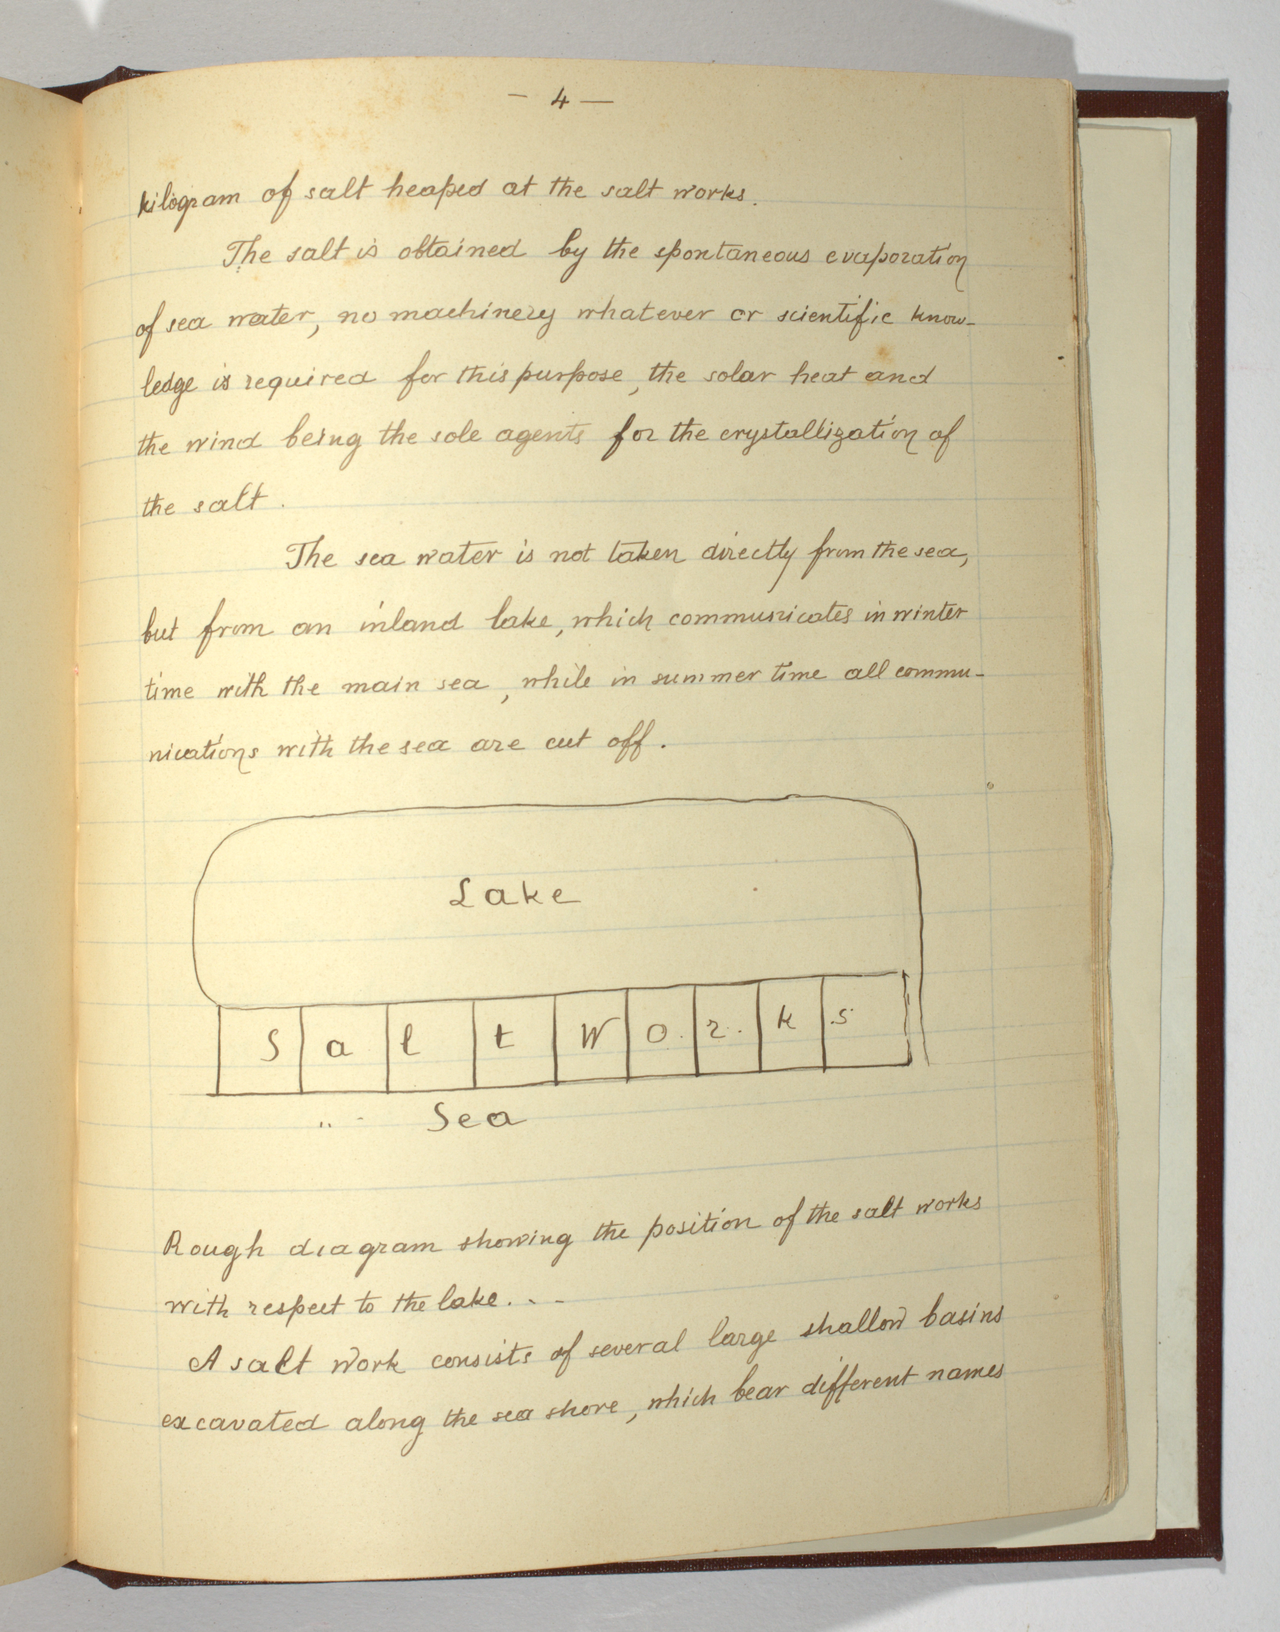 — 4 —
kilogram of salt heaped at the salt works.
The salt is obtained by the spontaneous evaporation
of sea water, no machinery whatever or scientific know-
ledge is required for this purpose, the solar heat and
the wind being the sole agents for the crystallization of
the salt.
The sea water is not taken directly from the sea,
but from an inland lake, which communicates in winter
time with the main sea, while in summer time all commu-
nications with the sea are cut off.
Lake
Salt Works
Sea
Rough diagram showing the position of the salt works
with respect to the lake. - -
A salt work consists of several large shallow basins
excavated along the sea shore, which bear different names